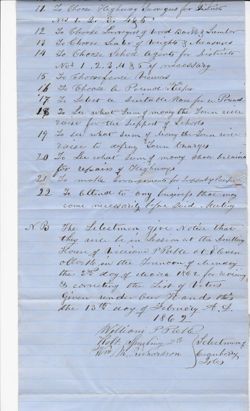 11 To Choose Highway Surveyors for Districts
No 1. 2. 3. 4 & 5
12 To Choose Surveyors of Wood Bark & Lumber
13 To Choose Sealer of Weights & Measures
14 To Choose School Agents for Districts
No 1. 2. 3. 4 & 5 if necessary
15 To Choose Fence Viewers
16 To Choose a Pound Keeper
17 To Select a Suitable Place for a Pound
18 To See what Sum of money the Town will
raise for the Support of Schools
19 To see what Sum of money the Town will
raise to defray Town Charges
20 To See what Sum of money shall be raised
for repairs of Highways
21
22 To Attend to any business that may
come necessarily before Said Meeting
N. B. The Selectmen give Notice that
they will be in Session at the Dwelling
House of William P Preble at Eleven
oClock in the forenoon of
the 22nd day of 1862 for
& correcting the List of Voters
Given under our Hands this
the 15th day of February A. D.
1862
William P Preble
Wm M Richardson
Selectmen
of
Cranberry
Isles